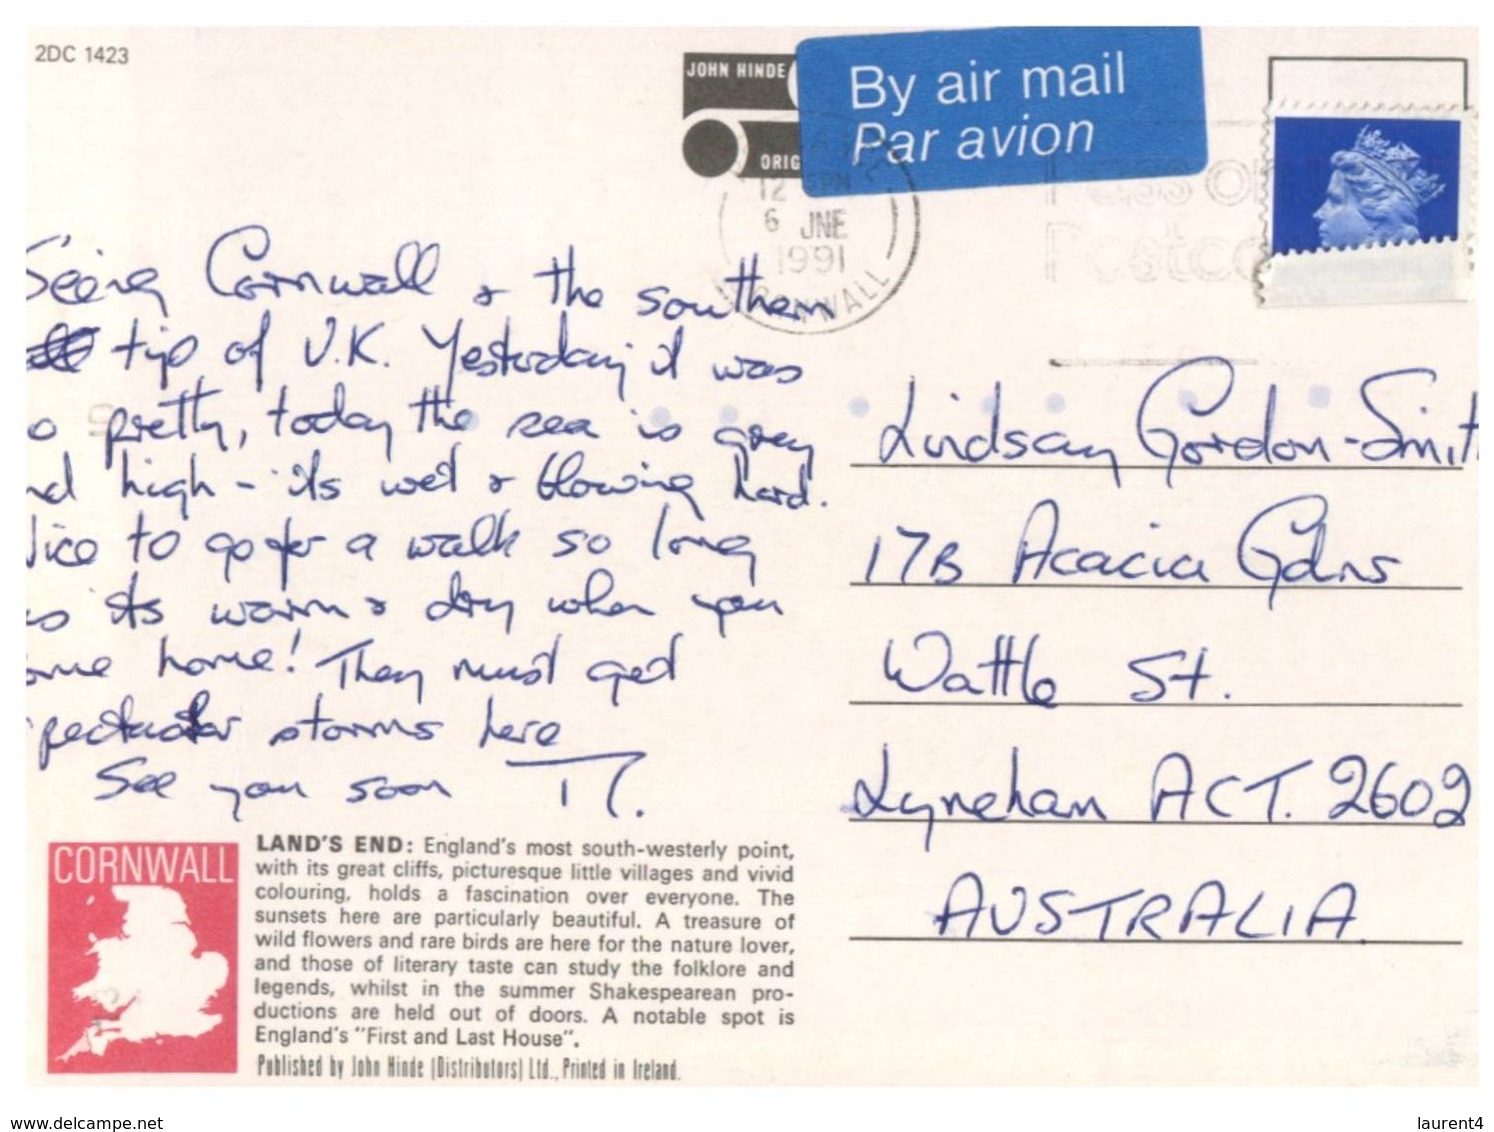 2DC 1423
JOHN HINDE
ORIG
By air mail
Par avion
12
6 JNE
1991
CORNWALL
Seeing Cornwall & the southern
tip of U.K. Yesterday it was
o pretty, today the sea is grey
nd high - its wet & blowing hard.
Nice to go for a walk so long
as its warm & dry when you
ome home! They must get
pectacular storms here
See you soon T.
Lindsay Gordon-Smit
17B Acacia Gdns
Wattle St.
Lyneham ACT. 2602
AUSTRALIA.
CORNWALL
LAND'S END: England's most south-westerly point,
with its great cliffs, picturesque little villages and vivid
colouring, holds a fascination over everyone. The
sunsets here are particularly beautiful. A treasure of
wild flowers and rare birds are here for the nature lover,
and those of literary taste can study the folklore and
legends, whilst in the summer Shakespearean pro-
ductions are held out of doors. A notable spot is
England's "First and Last House".
Published by John Hinde (Distributors) Ltd., Printed in Ireland.
www.delcampe.net
laurent4